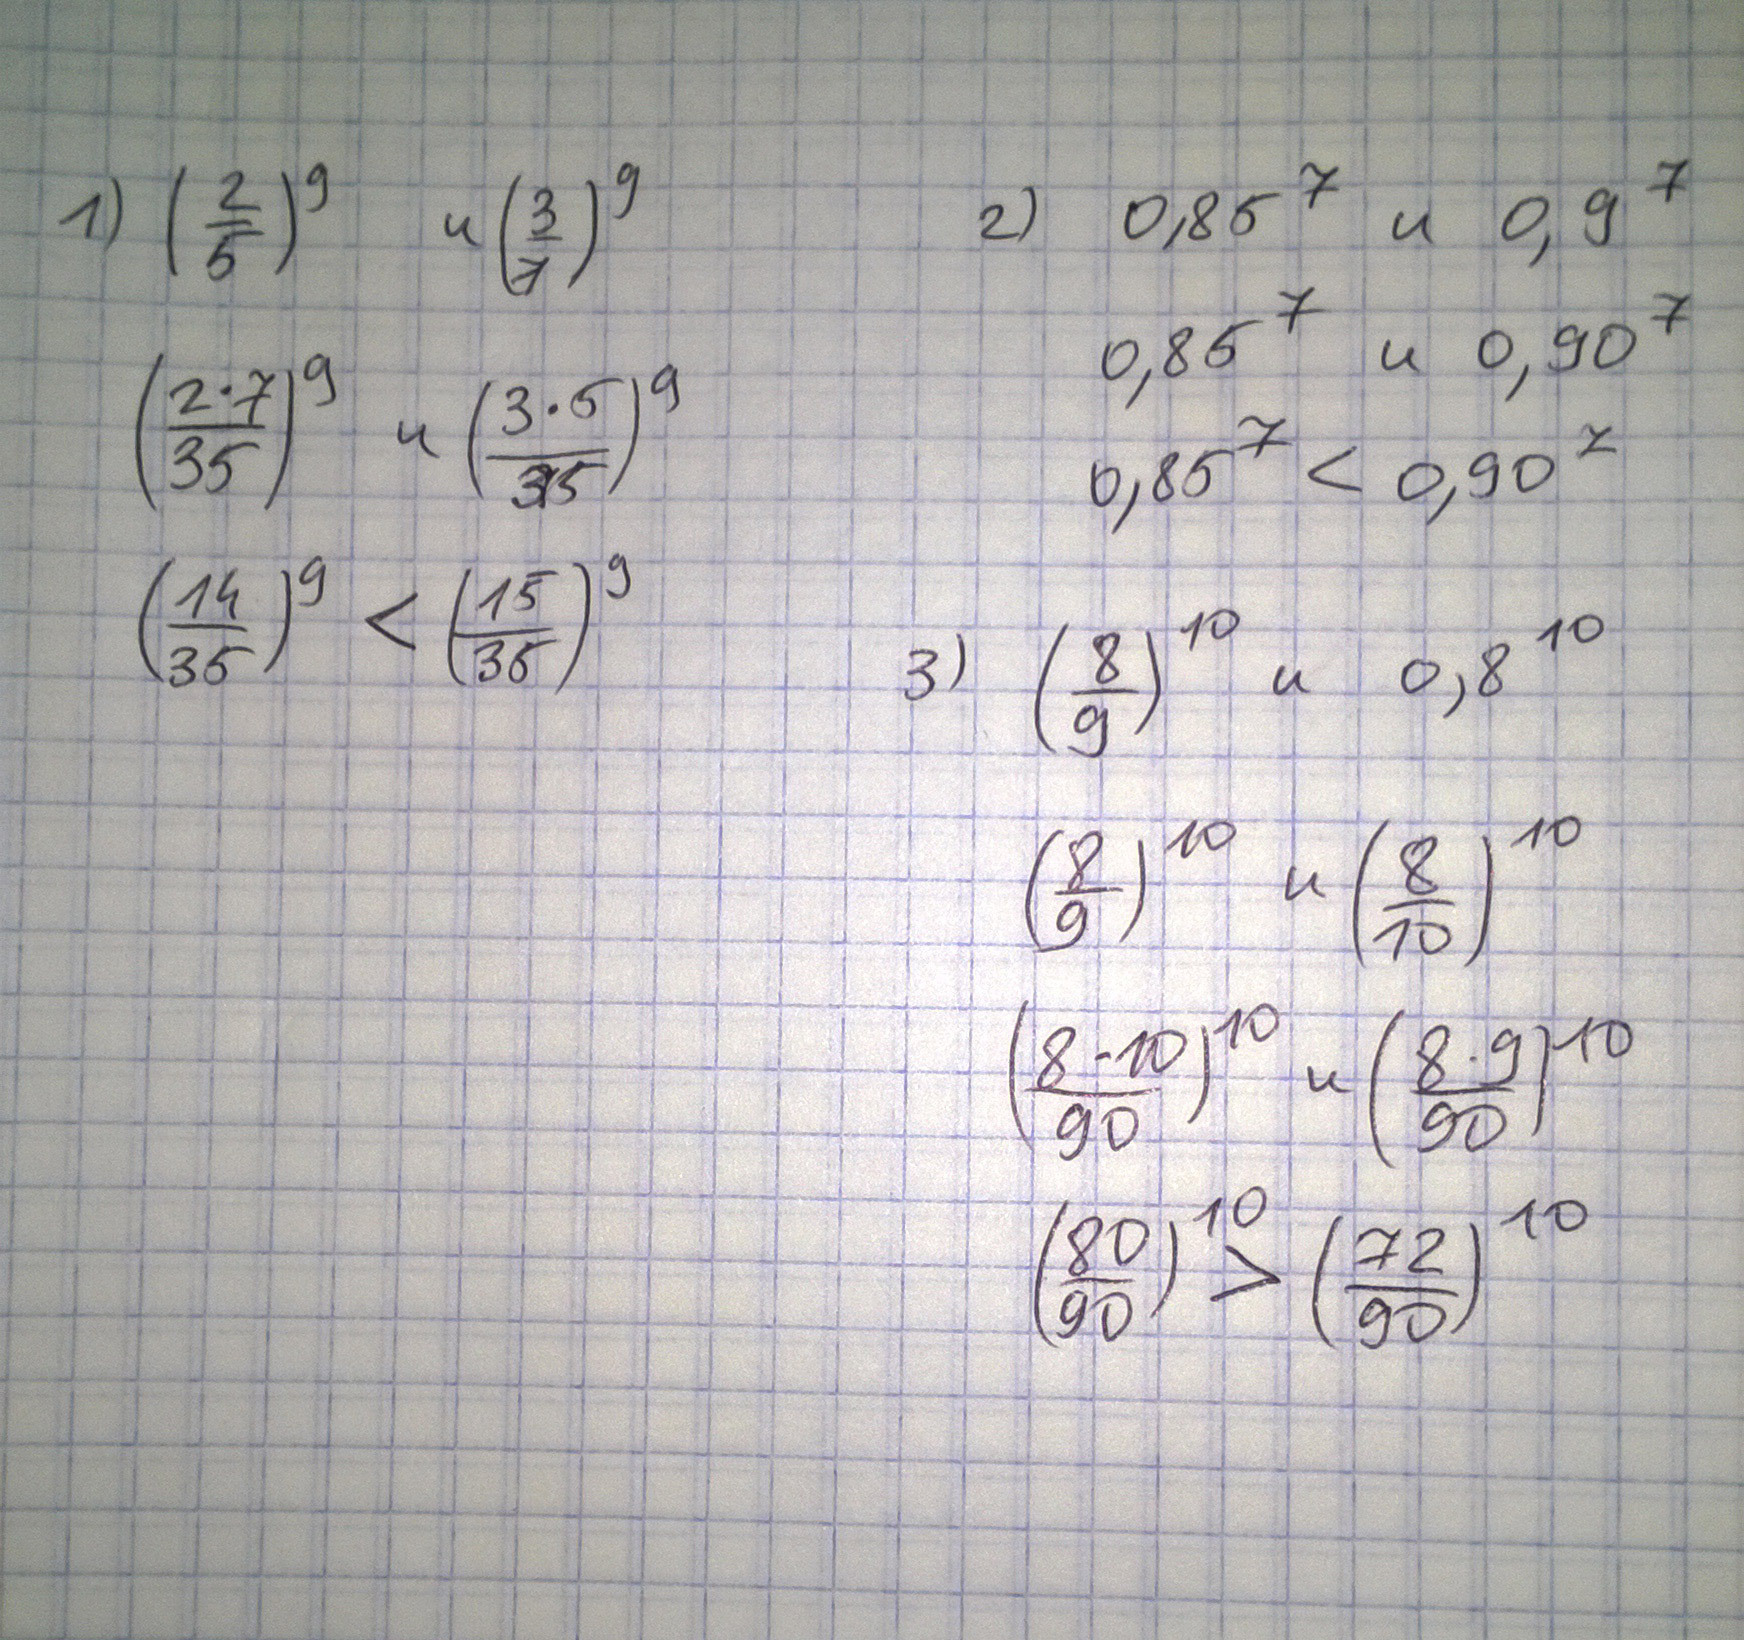 1) (2/5)^9 и (3/7)^9
(2·7/35)^9 и (3·5/35)^9
(14/35)^9 < (15/35)^9
2) 0,85^7 и 0,9^7
0,85^7 и 0,90^7
0,85^7 < 0,90^7
3) (8/9)^10 и 0,8^10
(8/9)^10 и (8/10)^10
(8·10/90)^10 и (8·9/90)^10
(80/90)^10 > (72/90)^10